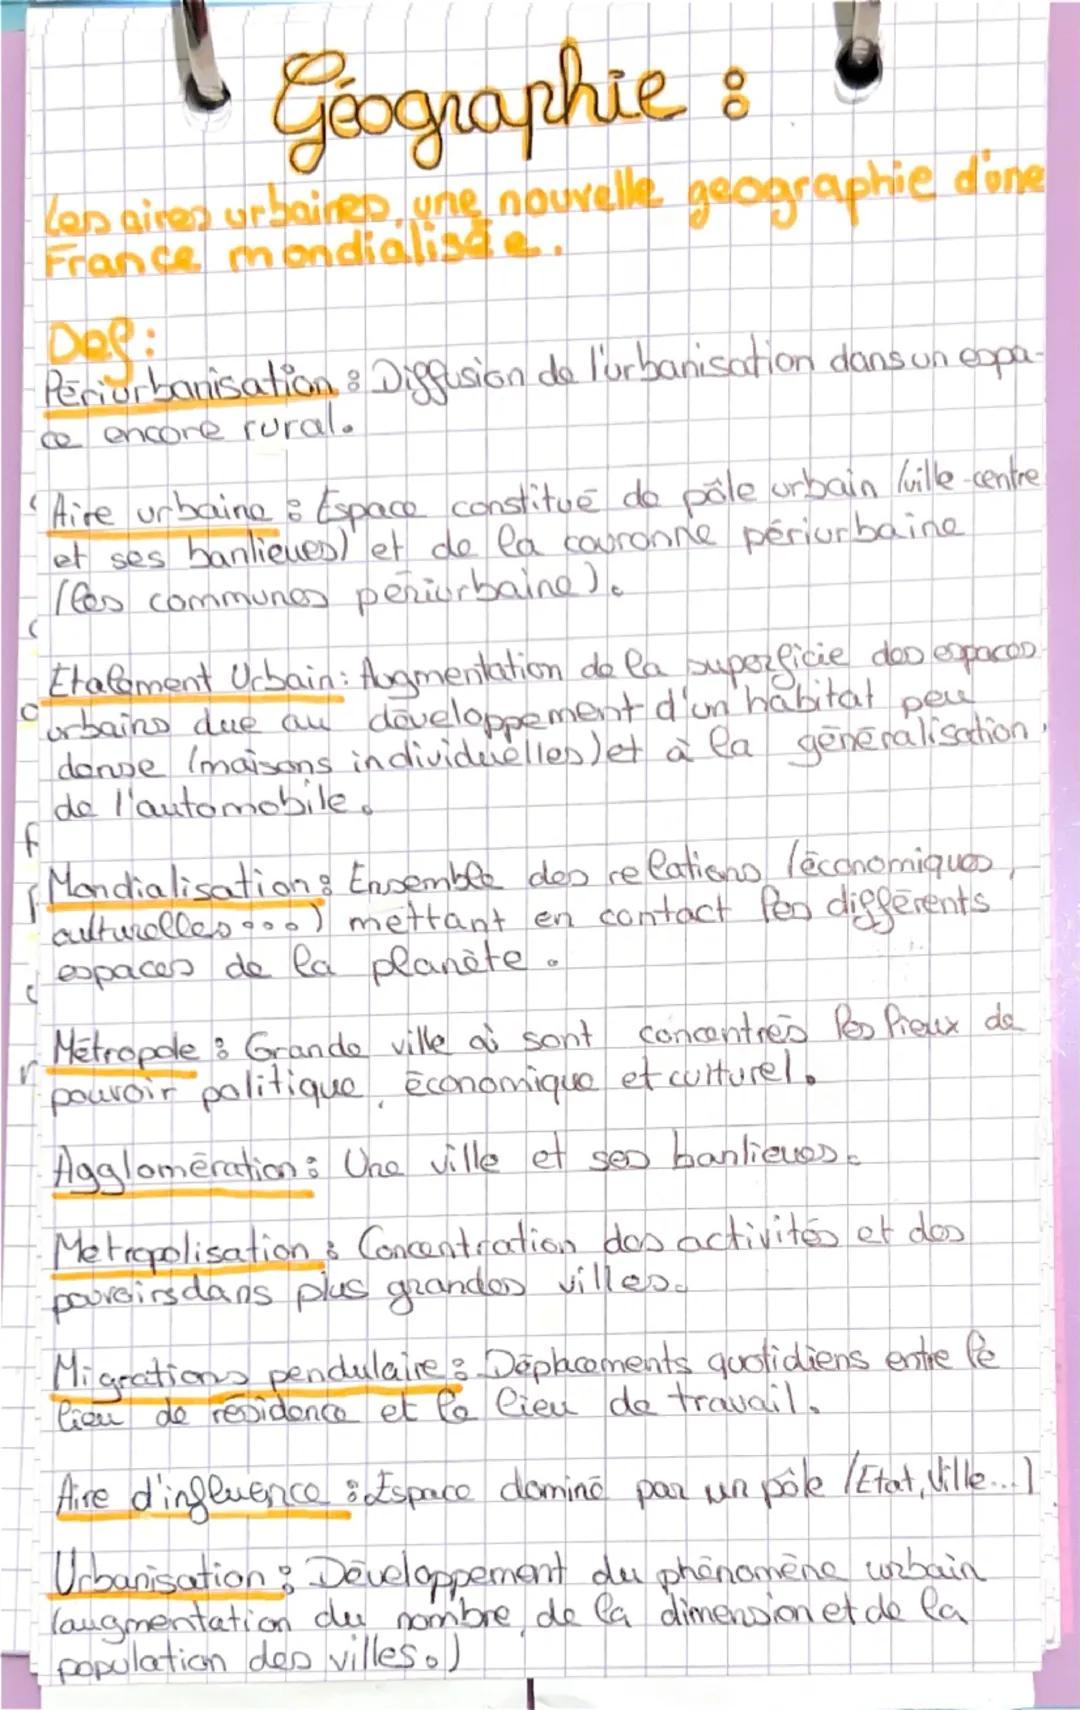 Géographie :
Les aires urbaines, une nouvelle geographie d'une
France mondialisée.
Def :
Périurbanisation : Diffusion de l'urbanisation dans un espa-
ce encore rural.
Aire urbaine : Espace constitué de pôle urbain (ville-centre
et ses banlieues) et de la couronne périurbaine
(les communes périurbaine).
Etalement Urbain : Augmentation de la superficie des espaces
urbains due au développement d'un habitat peu
dense (maisons individuelles) et à la généralisation
de l'automobile.
Mondialisation : Ensemble des relations (économiques,
culturelles...) mettant en contact les différents
espaces de la planète.
Métropole : Grande ville où sont concentrés les lieux de
pouvoir politique, économique et culturel.
Agglomération : Une ville et ses banlieues.
Metropolisation : Concentration des activités et des
pouvoirs dans plus grandes villes.
Migrations pendulaire : Déplacements quotidiens entre le
lieu de résidence et le lieu de travail.
Aire d'influence : Espace dominé par un pôle (Etat, Ville...)
Urbanisation : Développement du phénomène urbain
(augmentation du nombre, de la dimension et de la
population des villes.)